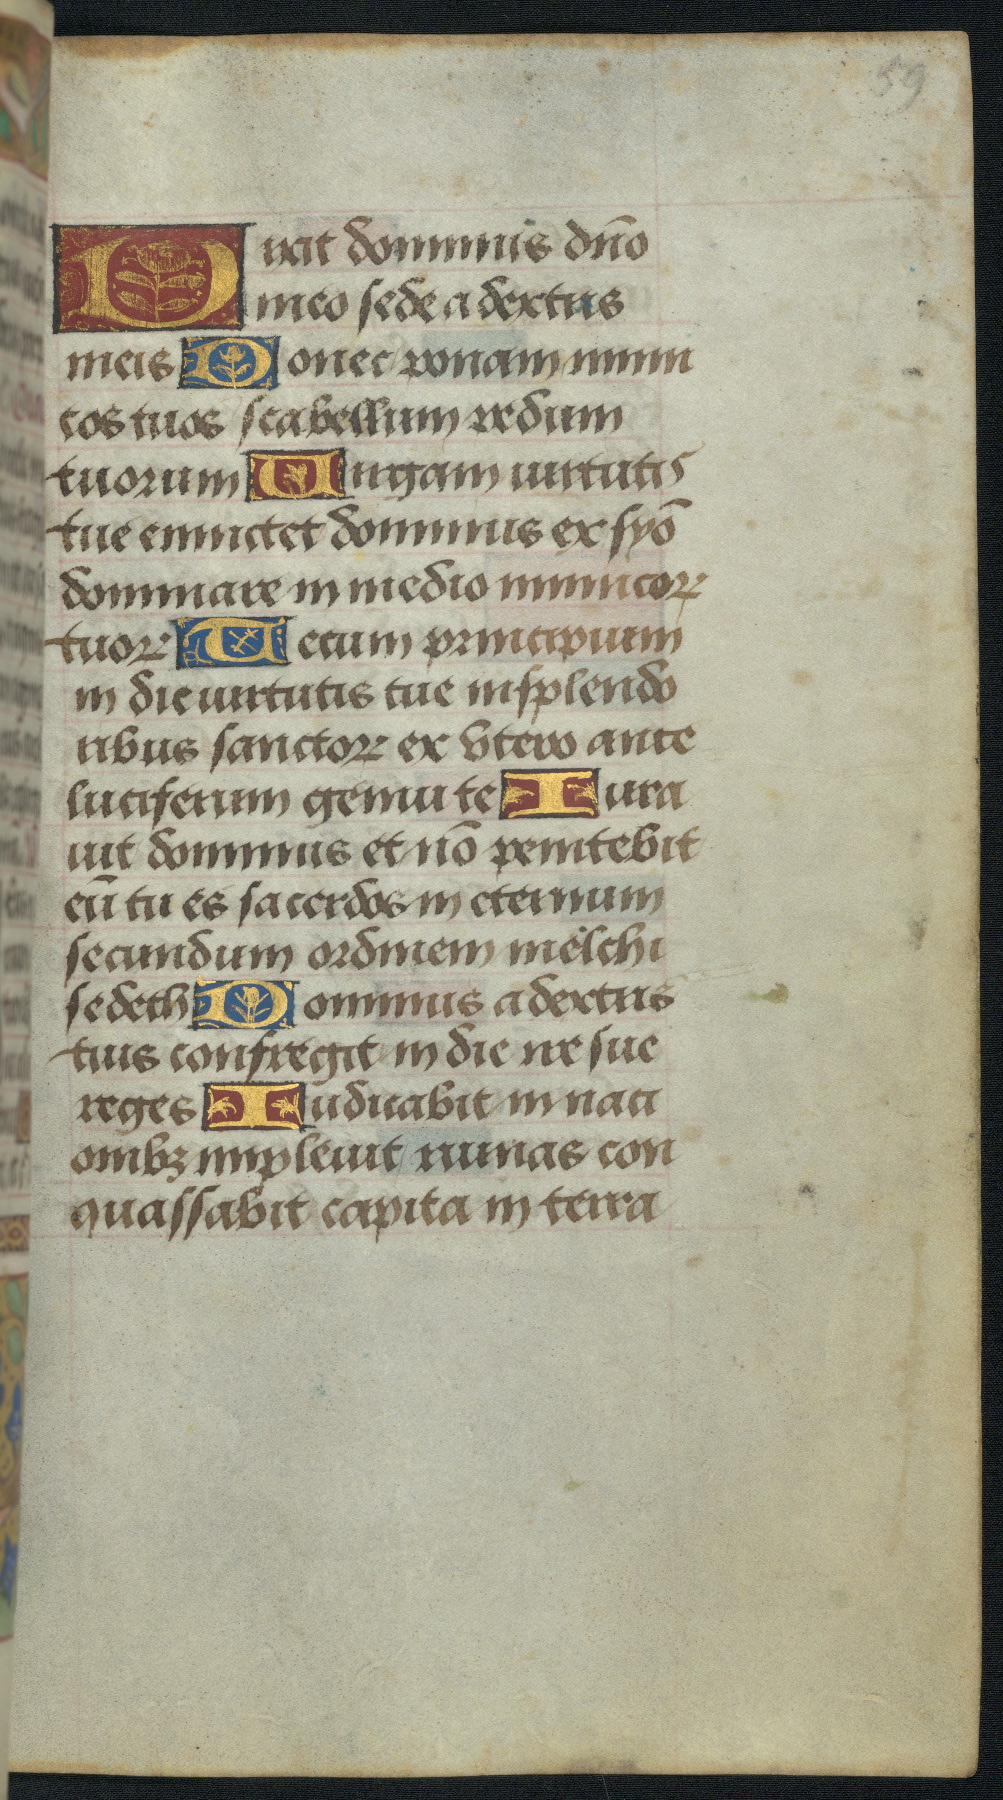 59
Dixit dominus dño
meo sede a dextris
meis Donec ponam inimi
cos tuos scabellum pedum
tuorum Virgam virtutis
tue emittet dominus ex syõ
dominare in medio inimicoꝝ
tuoꝝ Tecum principium
in die virtutis tue in splendo
ribus sanctoꝝ ex vtero ante
luciferum genui te Iura
uit dominus et nõ penitebit
eũ tu es sacerdos in eternum
secundum ordinem melchi
sedech Dominus a dextris
tuis confregit in die ire sue
reges Iudicabit in nati
onibꝫ impleuit ruinas con
quassabit capita in terra